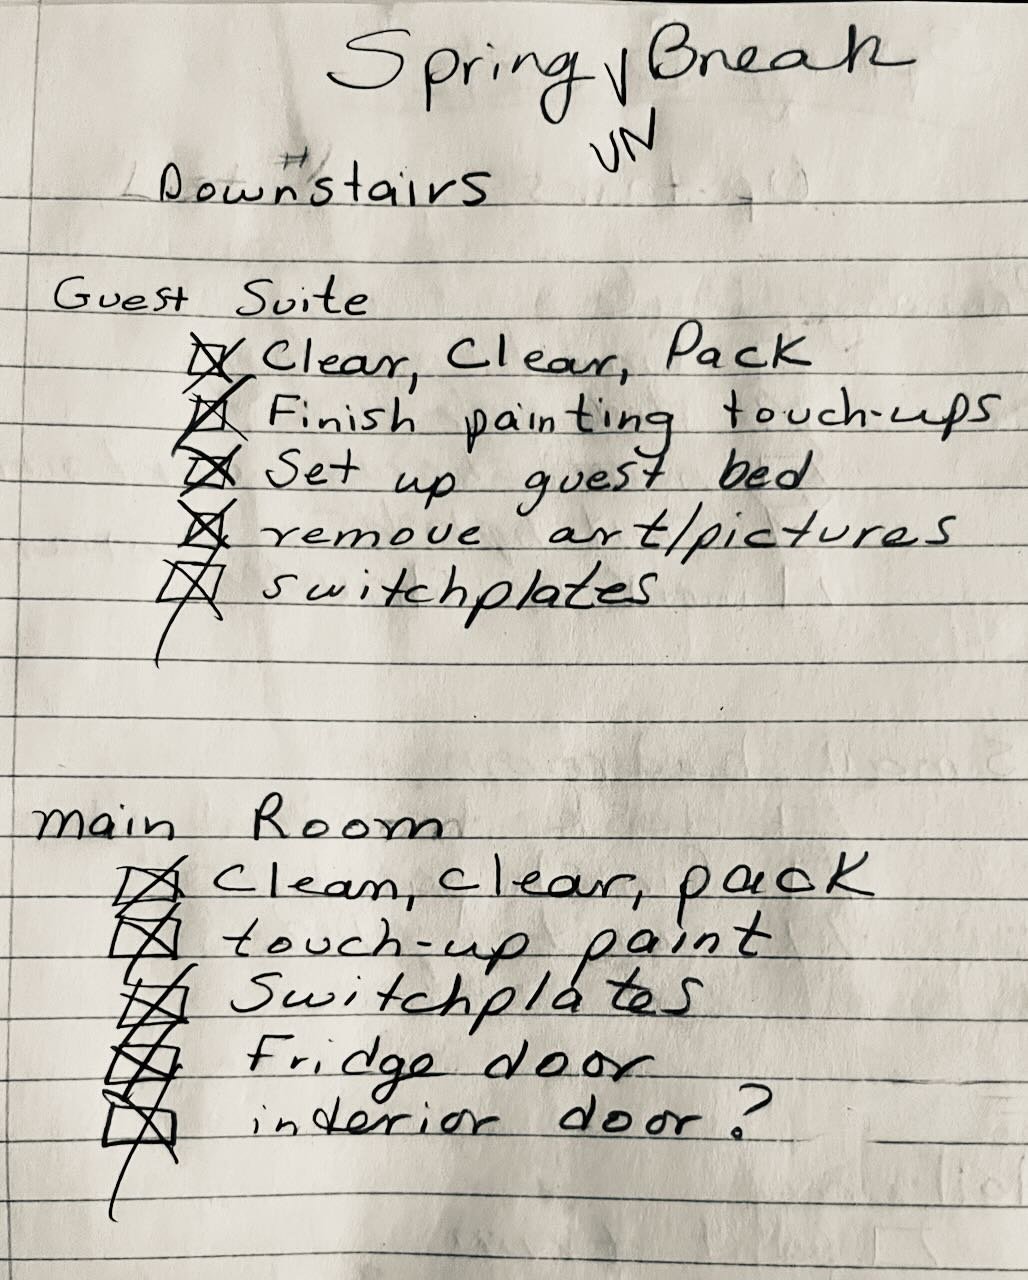 Spring Break
UN
Downstairs
Guest Suite
Clear, Clear, Pack
Finish painting touch-ups
Set up guest bed
remove art/pictures
switchplates
main Room
Clean, clear, pack
touch-up paint
Switchplates
Fridge door
interior door?